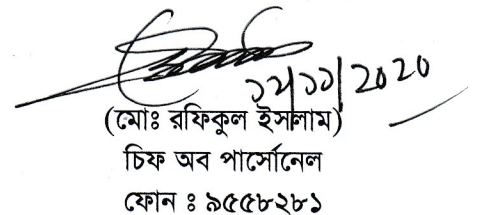 ১২/১১/2020
(মোঃ রফিকুল ইসলাম)
চিফ অব পার্সোনেল
ফোন ঃ ৯৫৫৮২৮১